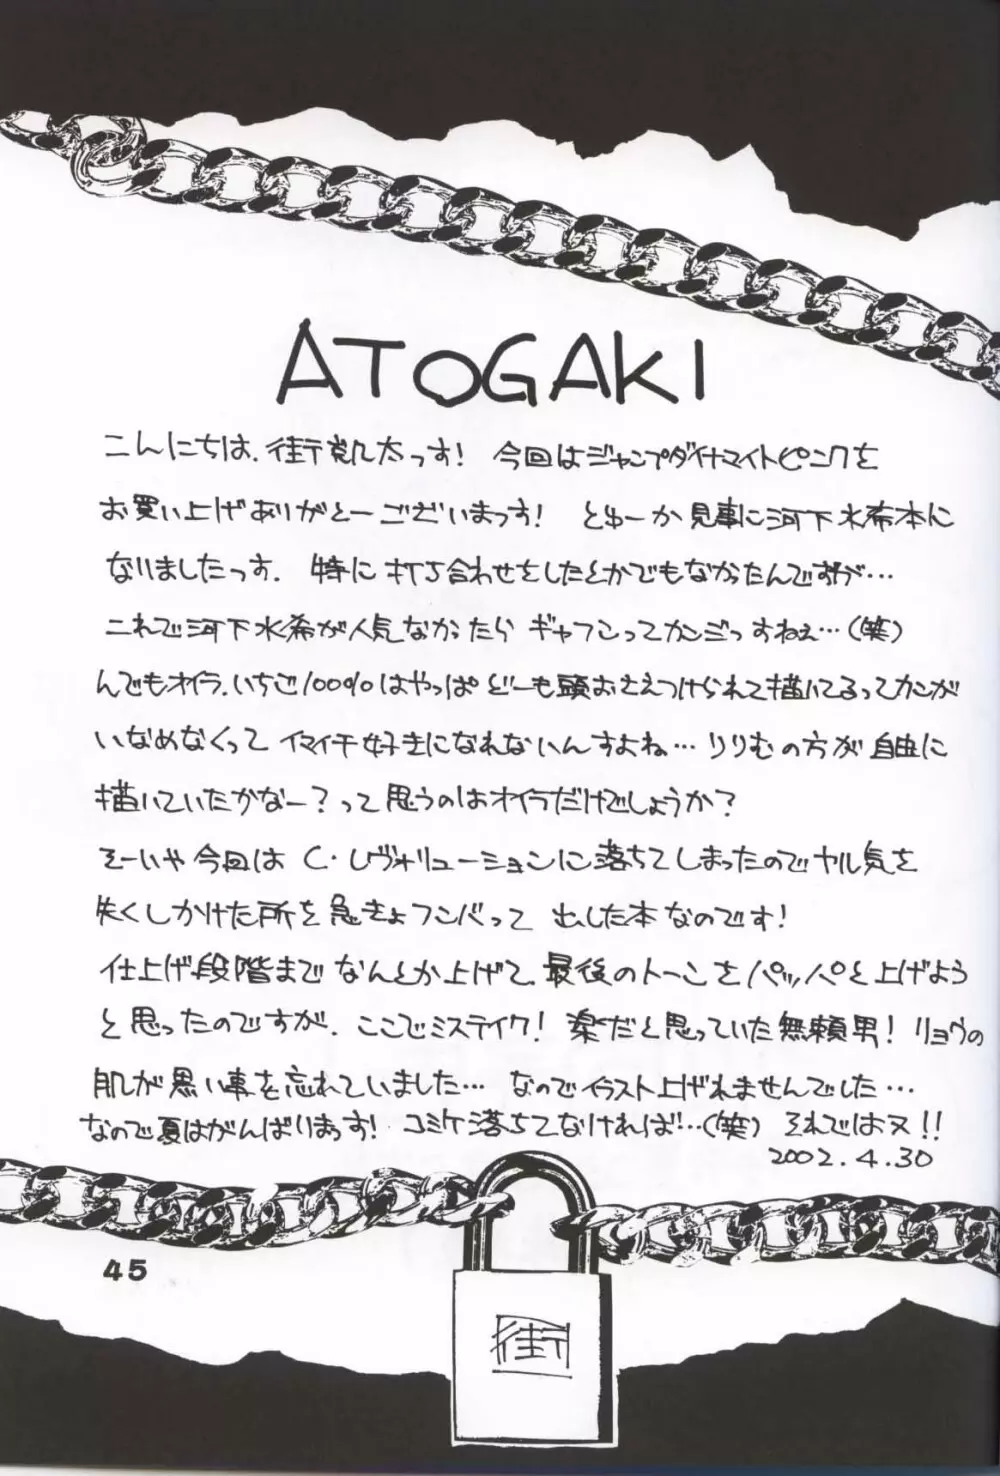 ATOGAKI
こんにちは、街凱太っす! 今回はジャンプダイナマイトピンクを
お買い上げありがとーございまっす! とゆーか見事に河下水希本に
なりましたっす. 特に打ち合わせをしたとかでもなかったんですが…
これで河下水希が人気なかったらギャフンってカンジっすねぇ…(笑)
んでもオイラ、いちご100%はやっぱどーも頭おさえつけられて描いてるってカンが
いなめなくってイマイチ好きになれないんすよね…りりむの方が自由に
描いていたかなー?って思うのはオイラだけでしょうか?
そーいや今回はC・レヴォリューションに落ちてしまったのでヤル気を
失くしかけた所を急きょフンバって出した本なのです!
仕上げ段階までなんとか上げて、最後のトーンをパッパと上げよう
と思ったのですが、ここでミステイク! 楽だと思っていた無頼男! リョウの
肌が黒い事を忘れていました… なのでイラスト上げれませんでした…
なので夏はがんばりまっす! コミケ落ちてなければ!…(笑) それではヌ!!
2002.4.30
45
街